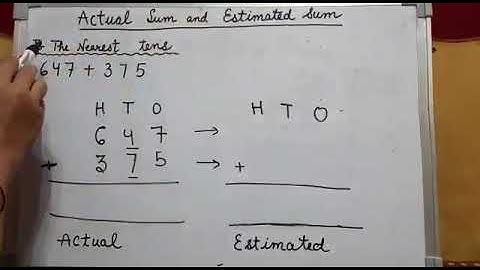 Actual Sum and Estimated Sum
The Nearest tens
647 + 375
H T O H T O
6 4 7 →
+ 3 7 5 → +
Actual Estimated